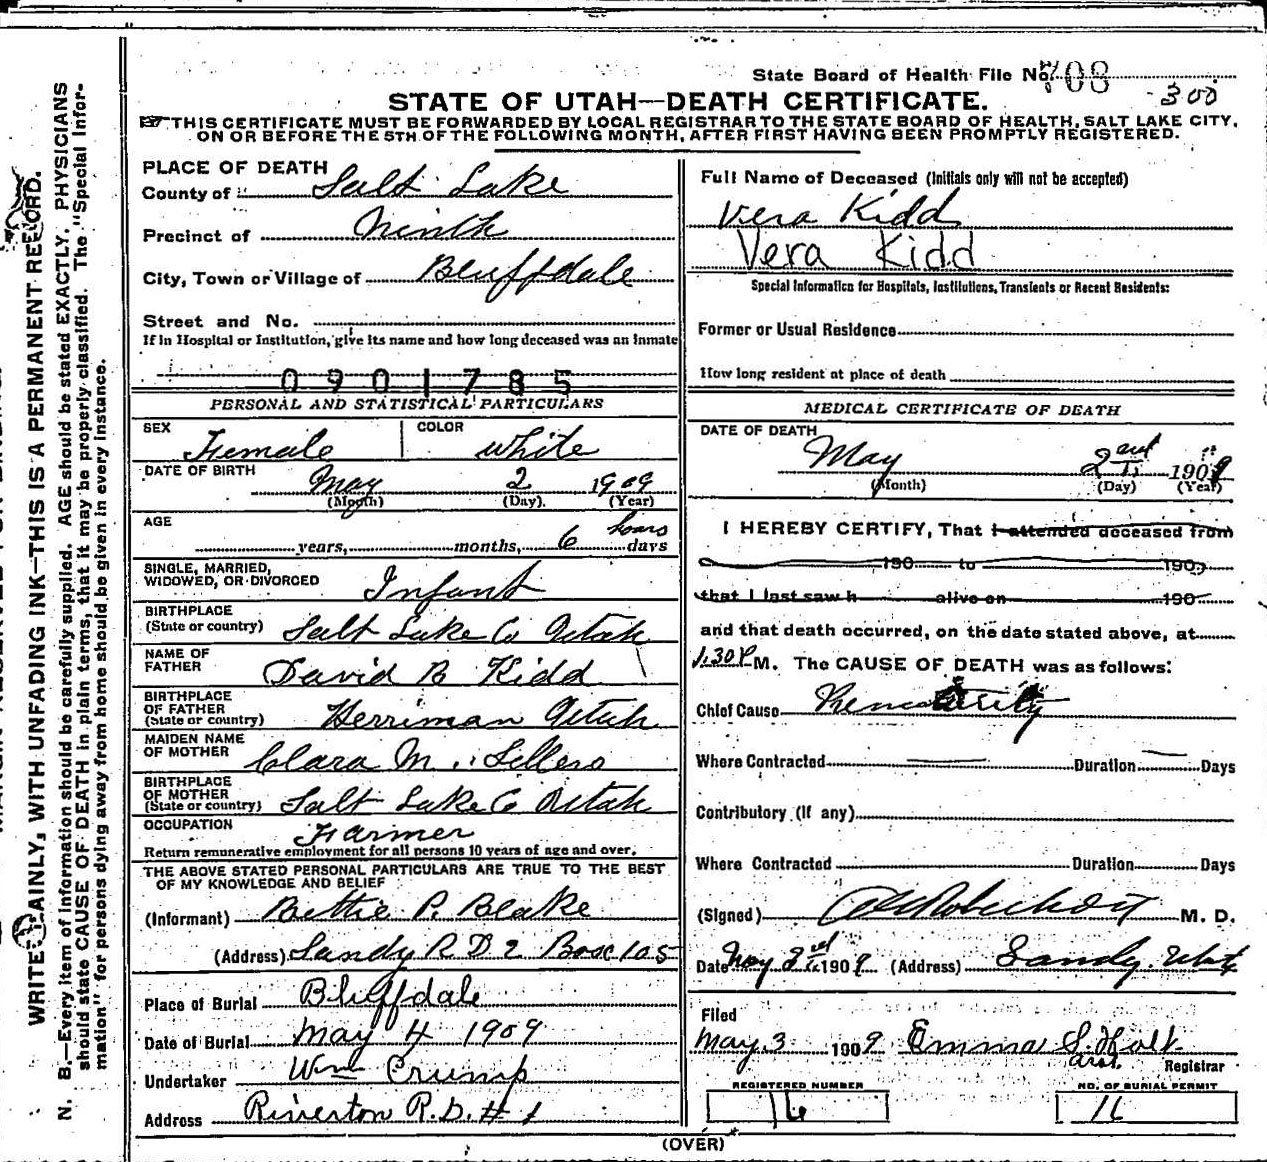 State Board of Health File No. 708
300
STATE OF UTAH—DEATH CERTIFICATE.
THIS CERTIFICATE MUST BE FORWARDED BY LOCAL REGISTRAR TO THE STATE BOARD OF HEALTH, SALT LAKE CITY,
ON OR BEFORE THE 5TH OF THE FOLLOWING MONTH, AFTER FIRST HAVING BEEN PROMPTLY REGISTERED.
WRITE PLAINLY, WITH UNFADING INK—THIS IS A PERMANENT RECORD.
N. B.—Every item of information should be carefully supplied. AGE should be stated EXACTLY. PHYSICIANS
should state CAUSE OF DEATH in plain terms, that it may be properly classified. The "Special Infor-
mation" for persons dying away from home should be given in every instance.
PLACE OF DEATH
County of Salt Lake
Precinct of Ninth
City, Town or Village of Bluffdale
Street and No.
If in Hospital or Institution, give its name and how long deceased was an inmate
0901785
PERSONAL AND STATISTICAL PARTICULARS
SEX Female COLOR White
DATE OF BIRTH May 2 1909
(Month) (Day). (Year)
AGE years, months, 6 days hours
SINGLE, MARRIED,
WIDOWED, OR DIVORCED Infant
BIRTHPLACE
(State or country) Salt Lake Co Utah
NAME OF
FATHER David B Kidd
BIRTHPLACE
OF FATHER
(State or country) Herriman Utah
MAIDEN NAME
OF MOTHER Clara M. Sellers
BIRTHPLACE
OF MOTHER
(State or country) Salt Lake Co Utah
OCCUPATION Farmer
Return remunerative employment for all persons 10 years of age and over.
THE ABOVE STATED PERSONAL PARTICULARS ARE TRUE TO THE BEST
OF MY KNOWLEDGE AND BELIEF
(Informant) Bettie P. Blake
(Address) Sandy R D 2 Box 105
Place of Burial Bluffdale
Date of Burial May 4 1909
Undertaker Wm Crump
Address Riverton R.D. # 1
Full Name of Deceased (Initials only will not be accepted)
Vera Kidd
Vera Kidd
Special Information for Hospitals, Institutions, Transients or Recent Residents:
Former or Usual Residence
How long resident at place of death
MEDICAL CERTIFICATE OF DEATH
DATE OF DEATH May 2nd 1909
(Month) (Day) (Year)
I HEREBY CERTIFY, That I attended deceased from
190 to 190
that I last saw h alive on 190
and that death occurred, on the date stated above, at
1.30 P M. The CAUSE OF DEATH was as follows:
Chief Cause
Where Contracted Duration Days
Contributory (If any)
Where Contracted Duration Days
(Signed) M. D.
Date May 3rd 1909 (Address) Sandy. Utah
Filed
May 3 1909 Emma S. Holt
Registrar
REGISTERED NUMBER
16
NO. OF BURIAL PERMIT
16
(OVER)